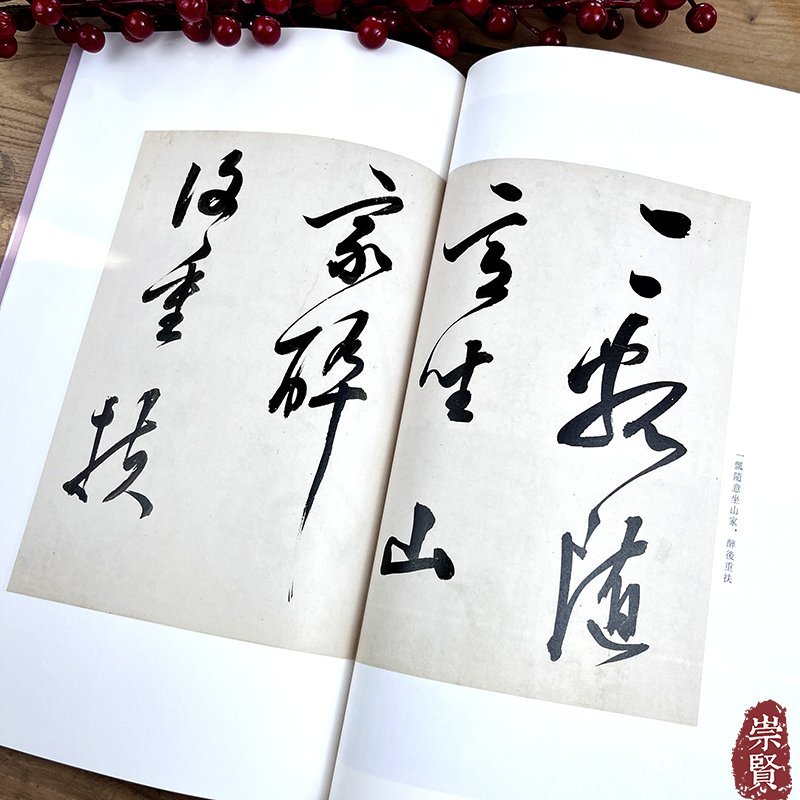 一瓢隨
意坐山
家醉
後重扶
一瓢隨意坐山家，醉後重扶
崇賢